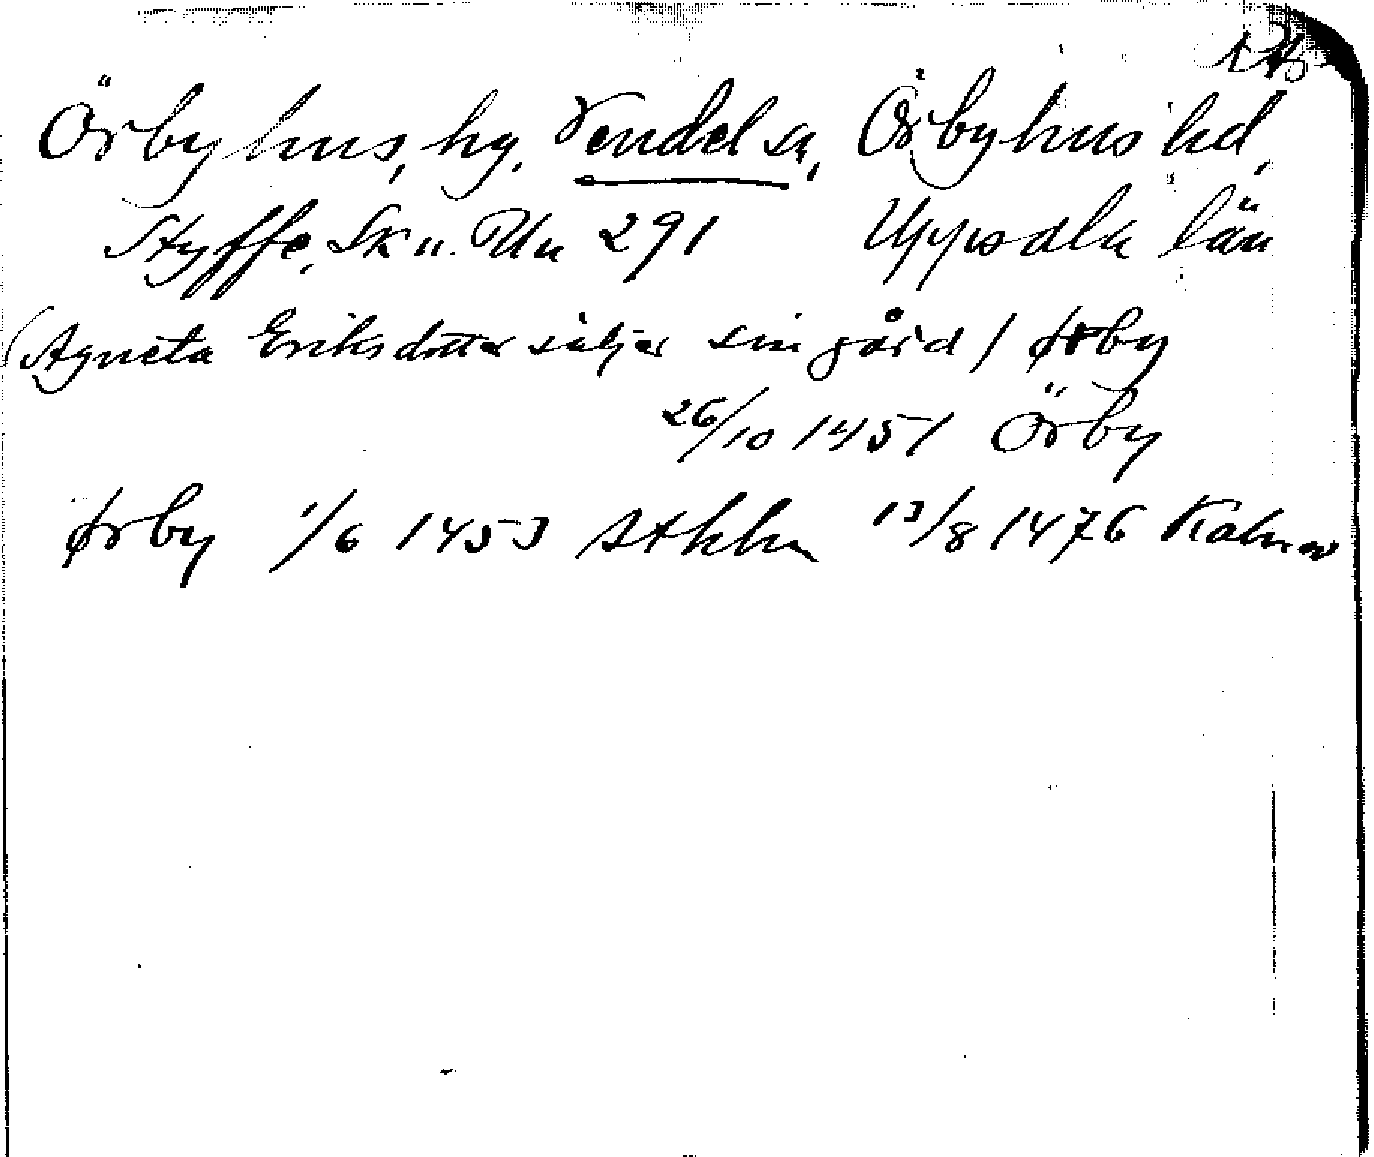 Örbyhus, hg. Vendel sn, Örbyhus hd,
Styffe, Sk u. Un 291 Uppsala län
(Agneta Eriksdotter säljer sin gård) ørby
26/10 1451 Örby
ørby 1/6 1453 Sthlm 13/8 1476 Kalmar